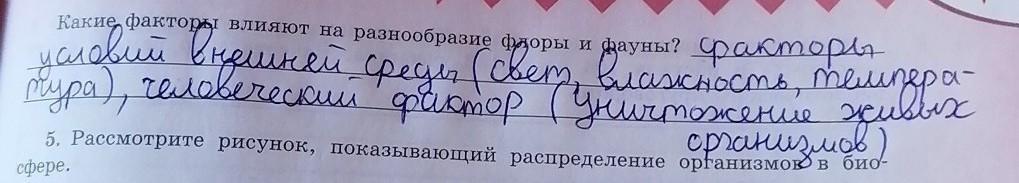 Какие факторы влияют на разнообразие флоры и фауны? факторы
условий внешней среды (свет, влажность, темпера-
тура), человеческий фактор (уничтожение живых
организмов)
5. Рассмотрите рисунок, показывающий распределение организмов в био-
сфере.